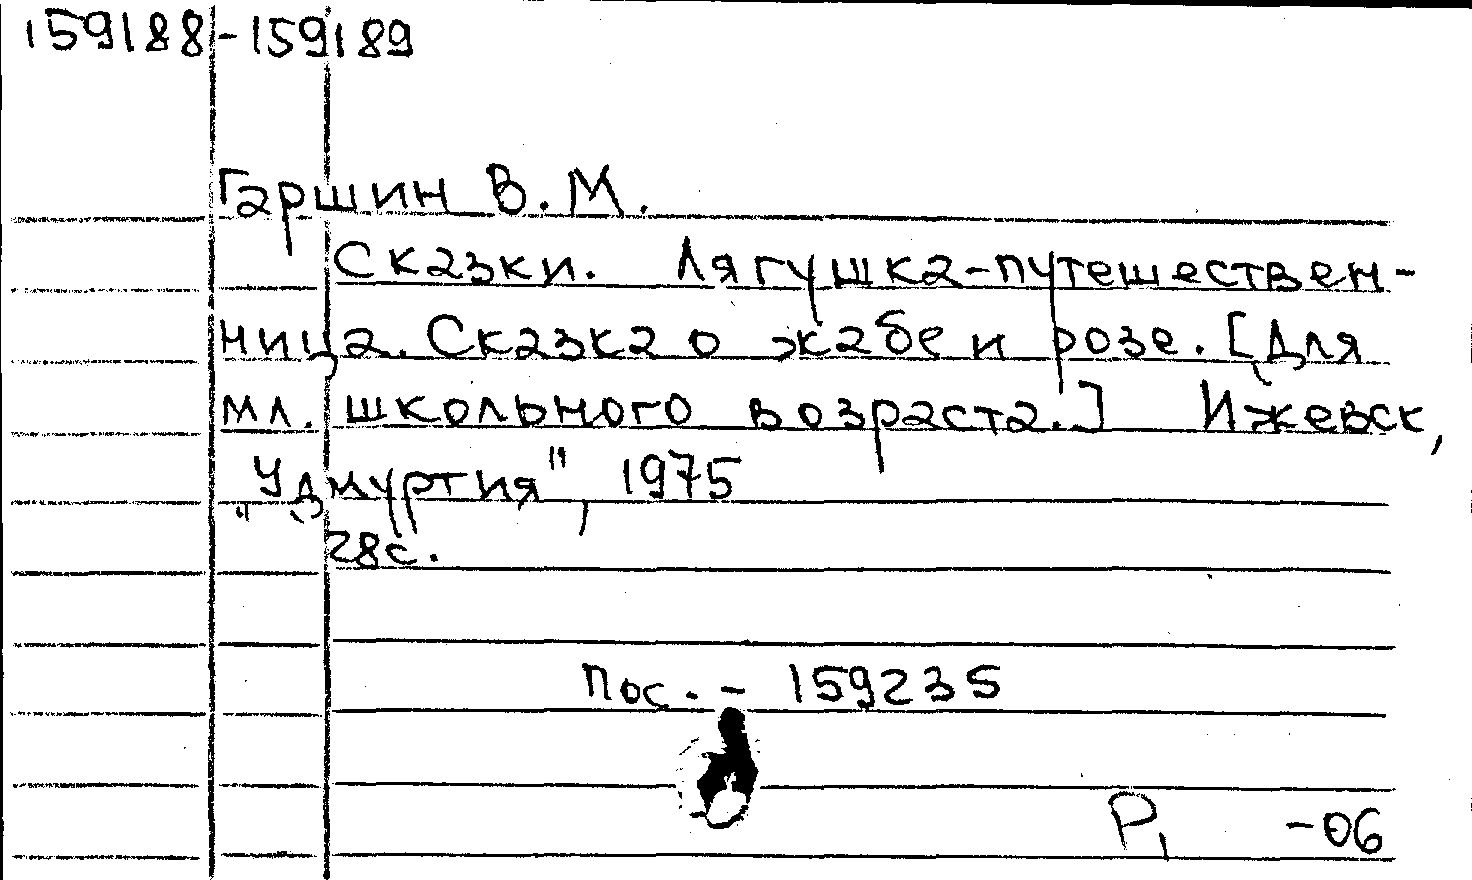 159188-159189
Гаршин В. М.
Сказки. Лягушка-путешествен-
ница. Сказка о жабе и розе. [Для
мл. школьного возраста.] Ижевск,
„Удмуртия", 1975
28с.
Пос. - 159235
Р₁ -06